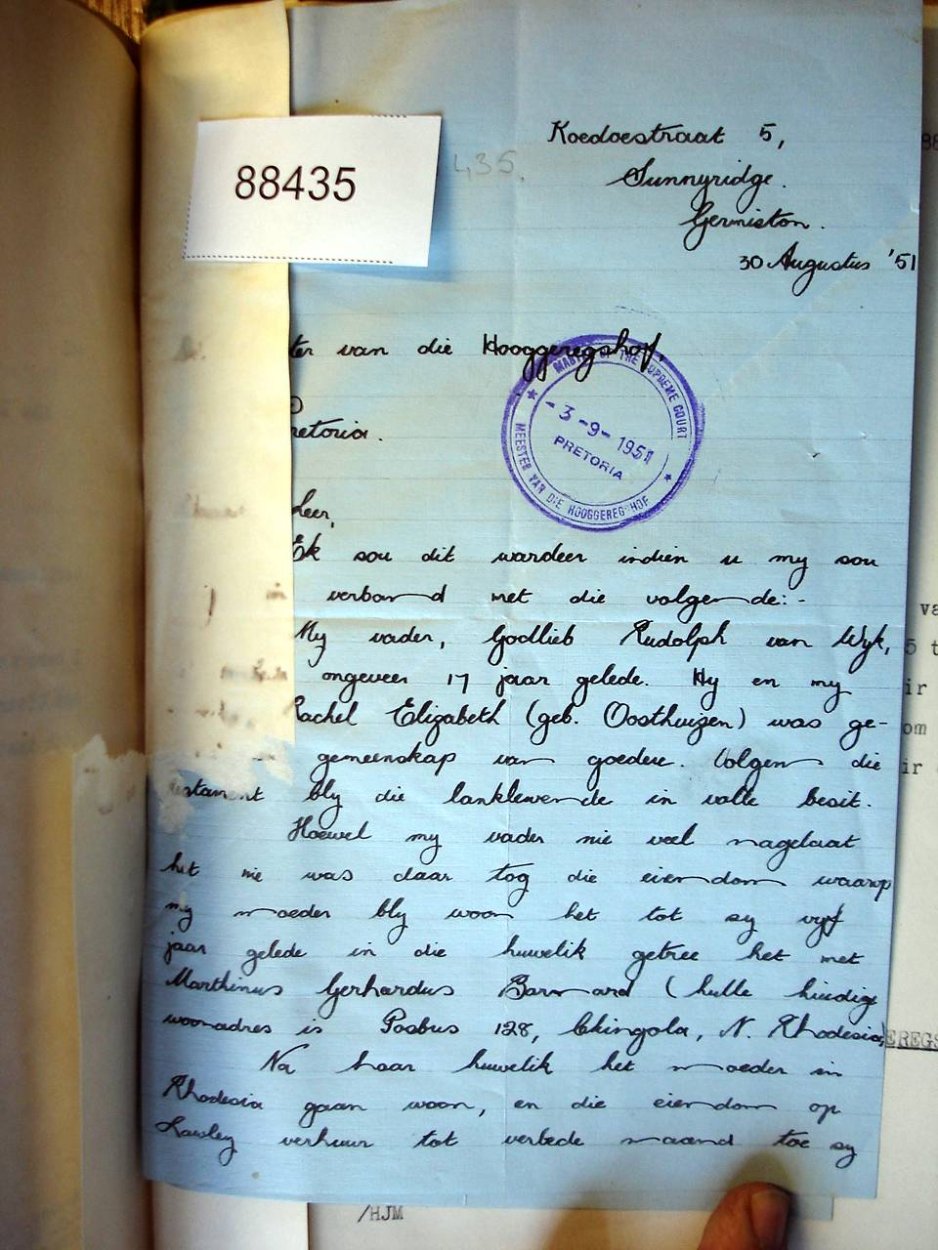 88435
435.
Koedoestraat 5,
Sunnyridge.
Germiston.
30 Augustus '51
ter van die Hooggeregshof.
MASTER OF THE SUPREME COURT
- 3 -9- 1951
PRETORIA
MEESTER VAN DIE HOOGGEREGSHOF
retoria.
Heer,
Ek sou dit wardeer indien u my sou
in verband met die volgende:-
My vader, Godlieb Rudolph van Wyk,
ongeveer 17 jaar gelede. Hy en my
Rachel Elizabeth (geb. Oosthuizen) was ge-
gemeenskap van goedere. Volgens die
testament bly die langlewende in volle besit.
Hoewel my vader nie veel nagelaat
het nie was daar tog die eiendom waarop
my moeder bly woon het tot sy vyf
jaar gelede in die huwelik getree het met
Marthinus Gerhardus Barnard (hulle huidige
woonadres is Posbus 128, Chingola, N. Rhodesia)
Na haar huwelik het moeder in
Rhodesia gaan woon, en die eiendom op
Lawley verhuur tot verlede maand toe sy
/HJM
va
5 t
ir
om
ir
EREGS